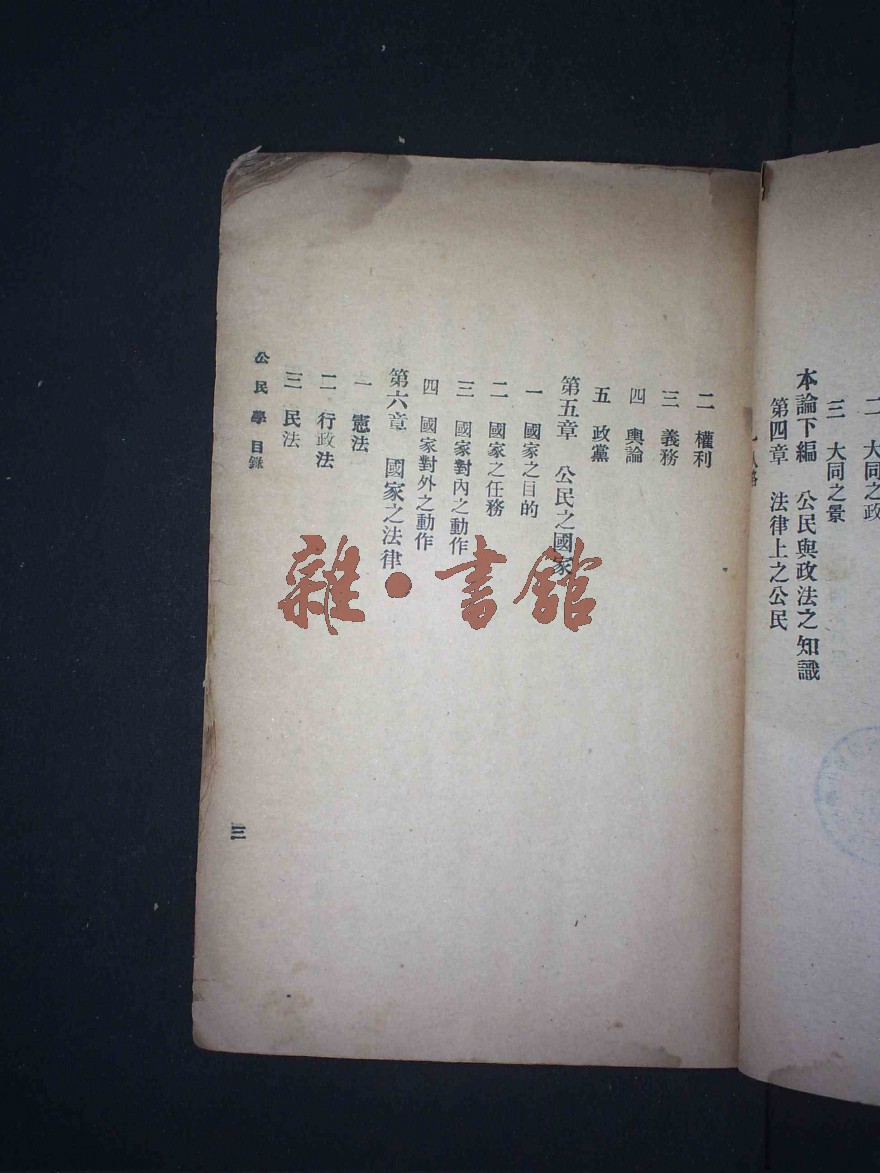 二　大同之政
三　大同之景
本論下編　公民與政法之知識
第四章　法律上之公民
二　權利
三　義務
四　輿論
五　政黨
第五章　公民之國家
一　國家之目的
二　國家之任務
三　國家對內之動作
四　國家對外之動作
第六章　國家之法律
一　憲法
二　行政法
三　民法
公民學　目錄
三
雜·書館